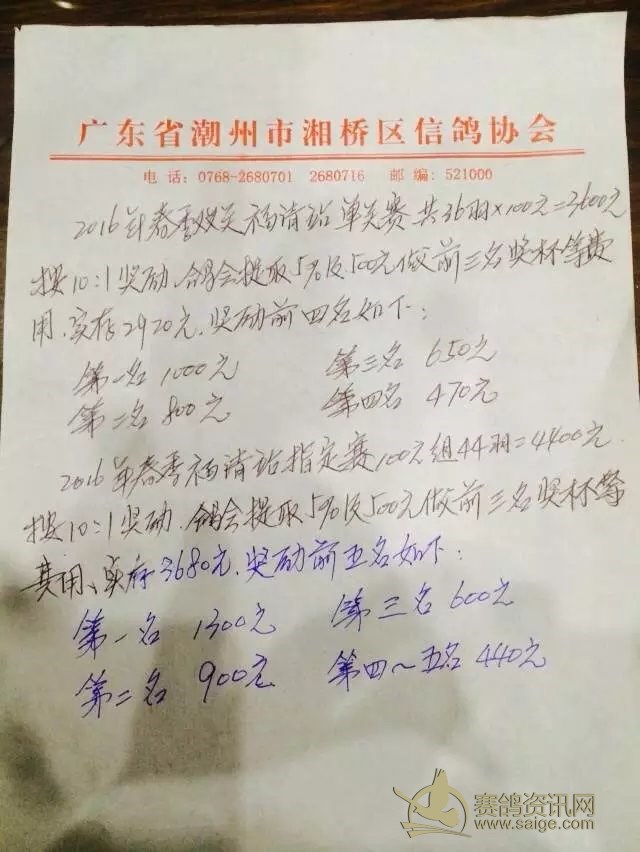 广东省潮州市湘桥区信鸽协会
电话:0768-2680701 2680716 邮编:521000
2016年春季双关福清站单关赛共36羽×100元=3600元
按10:1奖励、鸽会提取5%及500元做前三名奖杯等费
用、实存2920元、奖励前四名如下:
第一名 1000元 第三名 650元
第二名 800元 第四名 470元
2016年春季福清站指定赛100元组44羽=4400元
按10:1奖励、鸽会提取5%及500元做前三名奖杯等
费用、实存3680元、奖励前五名如下:
第一名 1300元 第三名 600元
第二名 900元 第四~五名 440元
赛鸽资讯网
www.saige.com